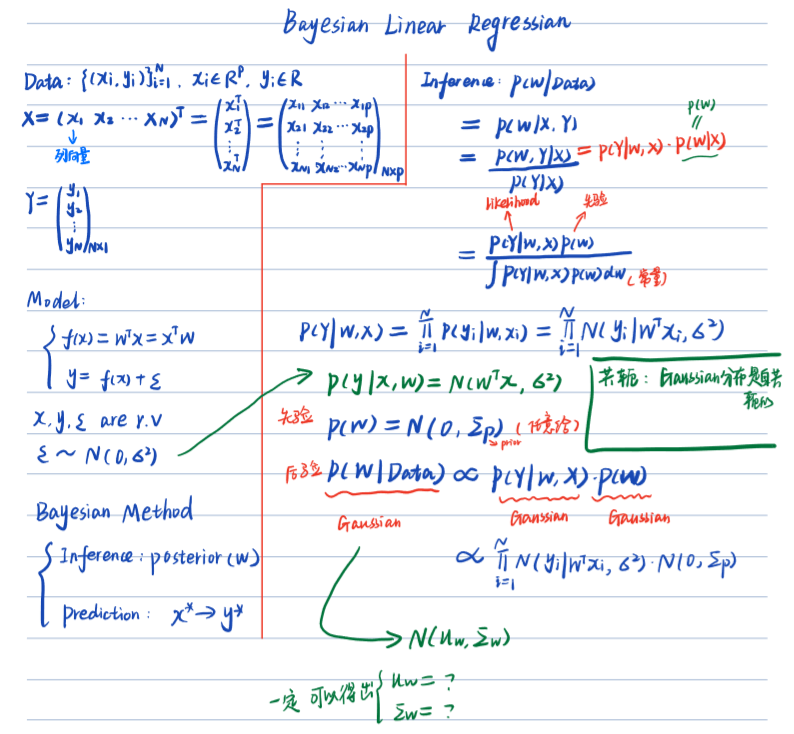 Bayesian Linear Regressian
Data: {(xi, yi)}_{i=1}^{N}, xi∈R^P, yi∈R
X = (x₁ x₂ ··· x_N)^T = (x₁^T x₂^T ⋮ x_N^T) = (x₁₁ x₁₂ ··· x₁p
x₂₁ x₂₂ ··· x₂p
⋮ ⋮ ⋮
x_N1 x_N2 ··· x_Np)_{N×p}
↓
列向量
Y = (y₁ y₂ ⋮ y_N)_{N×1}
Model:
{ f(x) = w^T x = x^T w
y = f(x) + ε
x, y, ε are r.v
ε ~ N(0, σ²)
Bayesian Method
{ Inference: posterior(w)
Prediction: x* → y*
Inference: p(w|Data)
= p(w|X, Y)
p(w)
||
= p(w, Y|X) / p(Y|X) = p(Y|w, x) · p(w|x)
likelihood 先验
= p(Y|w, x) p(w) / ∫ p(Y|w, x) p(w) dw (常量)
P(Y|w, x) = ∏_{i=1}^{N} P(yi|w, xi) = ∏_{i=1}^{N} N(yi|w^T xi, σ²)
p(y|x, w) = N(w^T x, σ²)
共轭: Gaussian分布是自共
轭的
先验 p(w) = N(0, Σp) (任意给)
prior
后验 p(w|Data) ∝ p(Y|w, X) · p(w)
Gaussian Gaussian Gaussian
∝ ∏_{i=1}^{N} N(yi|w^T xi, σ²) · N(0, Σp)
N(uw, Σw)
一定 可以得出 { uw = ?
Σw = ?